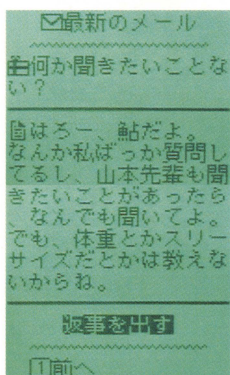 最新のメール
何か聞きたいことな
い？
はろー、鮎だよ。
なんか私ばっか質問し
てるし、山本先輩も聞
きたいことがあったら
なんでも聞いてよ。
でも、体重とかスリー
サイズだとかは教えな
いからね。
返事を出す
1前へ